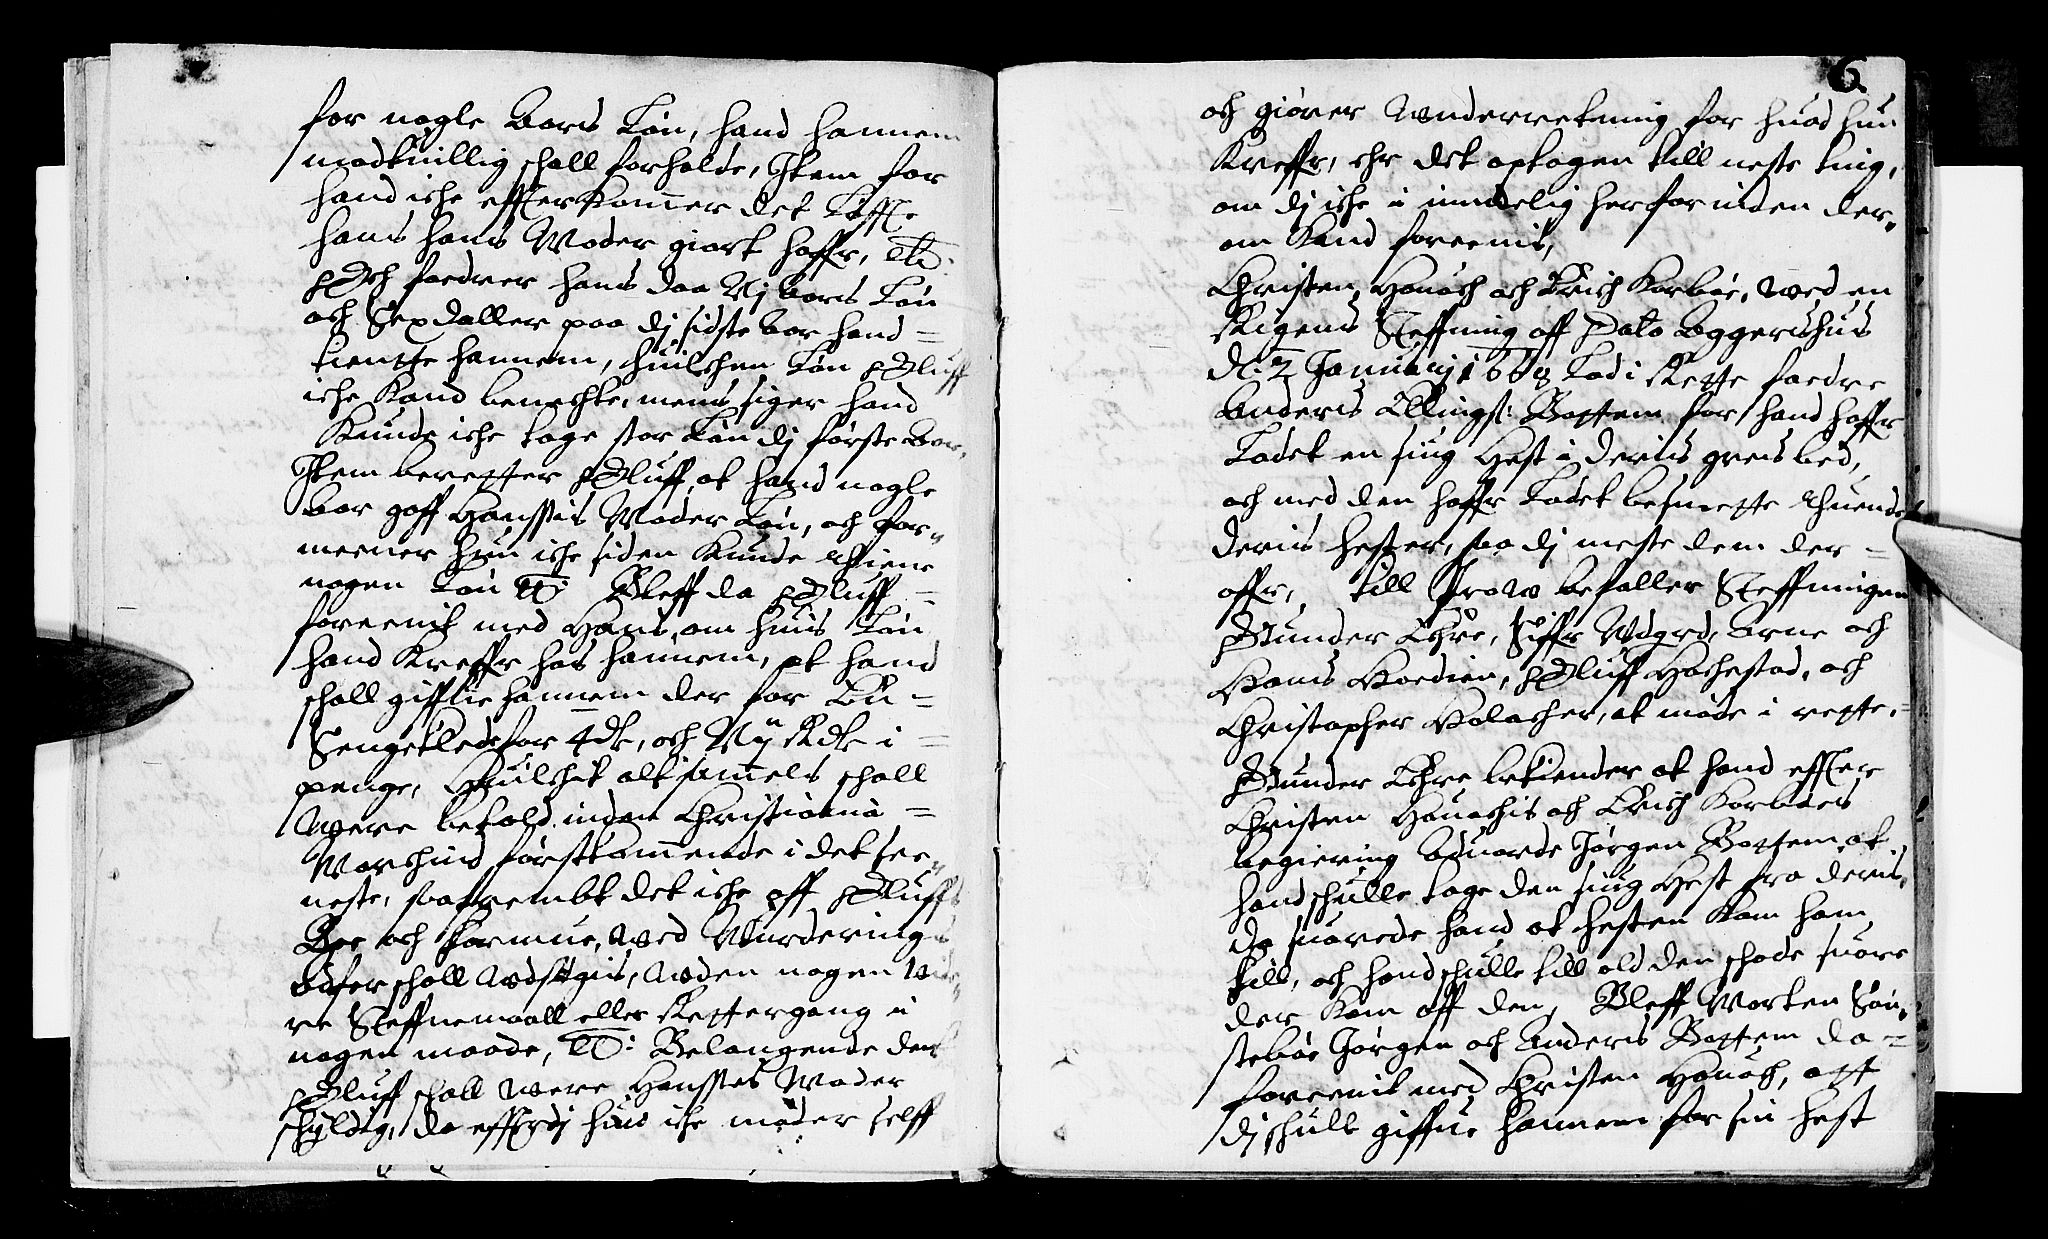 for nogle Aars Løn, hand hannem
modtvillig schall forholde, Item for
hand iche effterKommer det Løffte
hans hans Moder giort haffr, etc:
Och fordrer hans daa Vj Aars Løn
och Sex daller paa dj sidste Aar hand =
tiente hannem, huilchen Løn Oluff
iche Kand benechte, mens siger hand
Kunde iche tage stor Løn dj første Aar,
Item beretter Oluff, at hand nogle
Aar gaff Hansis Moder Løn, och for„
meener hun iche siden Kunde thiene
nogen Løn etc: Bleff da Oluff =
foreenit med Hans, om huis Løn
hand Kreffr hos hannem, at hand
schall giffue hannem der for En =
Sengeklede for 4 dlr, och Vij Rdlr i =
penge, Huilchit altsammels schall
Were betold inden Christiania =
Marchind førstkommende i det see„
neste, saafrembt det iche aff Oluffs
Boe och formue, wed Wurdering
Eufter schall Wdsøgis, Wden nogen wide„
re Steffnemaall eller Rettergang i
nogen maade, etc: Belangende det
Oluff schall were Hansses Moder
schyldig, da effterdj hun iche møder selff
6
och giører Wnderretning for huad hun
Kreffr, ehr det optagen till neste ting,
om dj iche i mindelig herforinden der„
om Kand foreenis,
Christen Houoch och Erich Korbøe, wed en
skigens Steffning aff Dato Aggershus
d. 2 Januarij 1668 Lod i Rette fordre
Anders Ellings: Bottem for hand haffr
Ladet en siug Hest i deris greisbed,
och med den haffr Ladet besmette thuende
deris hester, saa dj miste dem der =
offr, till Prow befaller Steffningen
Gunder Lehre, Siffr Wdgrd, Arne och
Hans Hoedien, Oluff Hochestad, och
Christopher Holacher, at møde i rette. =
Gunder Lehre bekiender at hand effter
Christen Houochis och Erich Korbøes
begiering Aduarde Jørgen Bottem at
hand schulle tage den siug Hest fra deris,
da suarede hand at hesten Kom ham
till, och hand schulle till old den schade suare
der Kom aff den, Bleff Morten Søn„
stebøe Jørgen och Anders Bottem da =
foreenit med Christen Houoch, att
dj schulle giffue hannem for sin hest